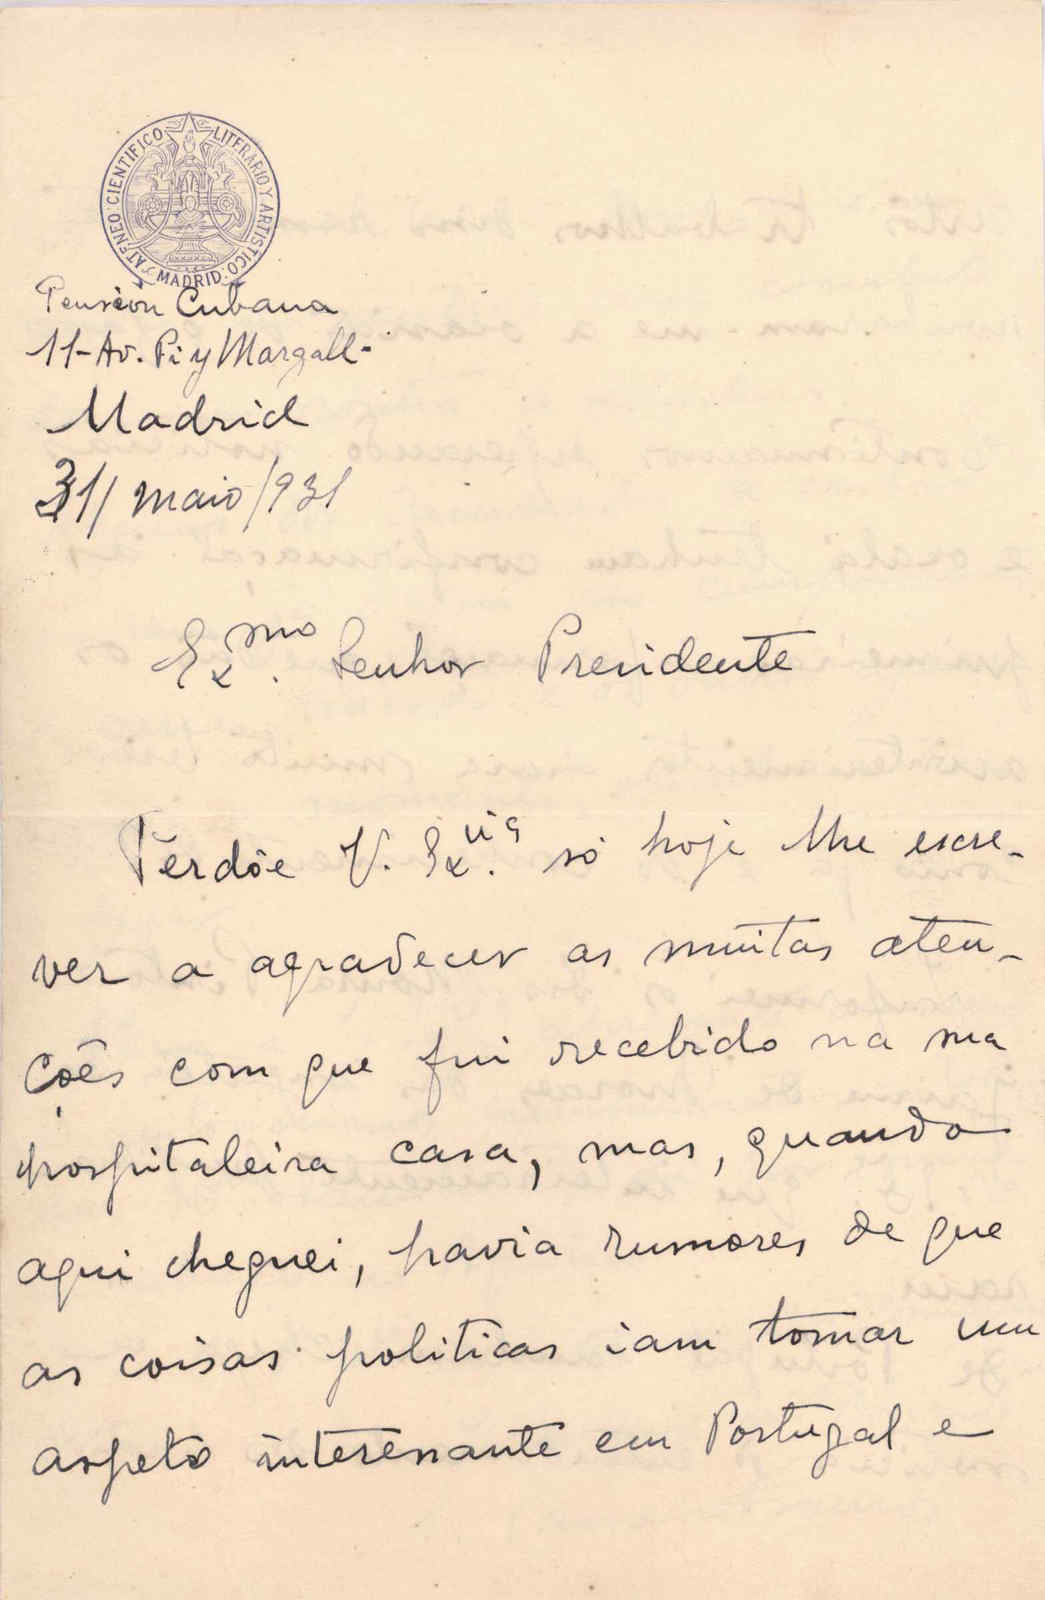 ATENEO CIENTIFICO LITERARIO Y ARTISTICO
MADRID
Pension Cubana
11-Av. Pi y Margall-
Madrid
31/ maio/931
Exmo. Senhor Presidente
Perdôe V. Exciª. só hoje lhe escre-
ver a agradecer as muitas aten-
ções com que fui recebido na sua
hospitaleira casa, mas, quando
aqui cheguei, havia rumores de que
as coisas politicas iam tomar um
aspeto interessante em Portugal e